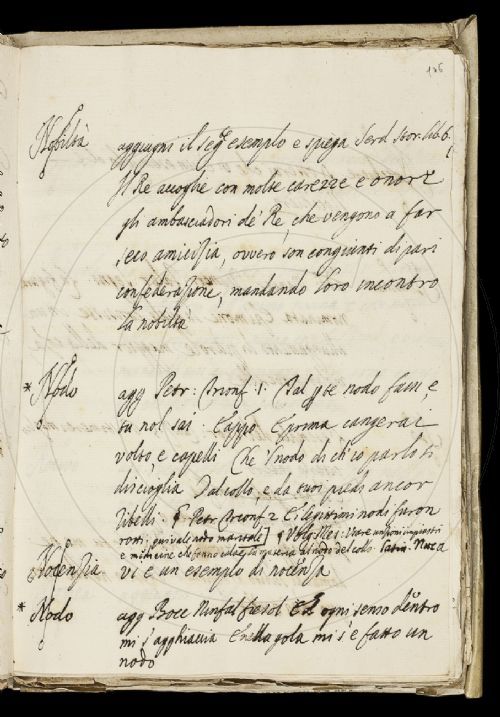 126
Nobiltà aggiugni il seg.te esempio e spiega Serd. Stor. lib. 6.
Il Re accoglie con molte carezze e onori
gli ambasciadori de' Re, che vengono a far
seco amicizia, ovvero son congiunti di pari
confederazione, mandando loro incontro
la nobiltà
* Nodo agg. Petr: Trionf: 1: Dal nodo fassi, e
tu nol sai E prima cangerai
volto, e capelli Che 'l nodo di ch'io parlo si
discioglia Dal collo, e da tuoi piedi ancor
ribelli. Petr Trionf 2 E i legittimi nodi furon
rotti: qui vale nodo maritale] Volg Mes: Usare
e medicine che fanno colare la materia al nodo del collo. Latin. Nuca
Nocenzia vi è un esempio di nocenza
* Nodo agg Bocc Ninfal fiesol Ed ogni senso dentro
mi s'agghiaccia E nella gola mi s'è fatto un
nodo